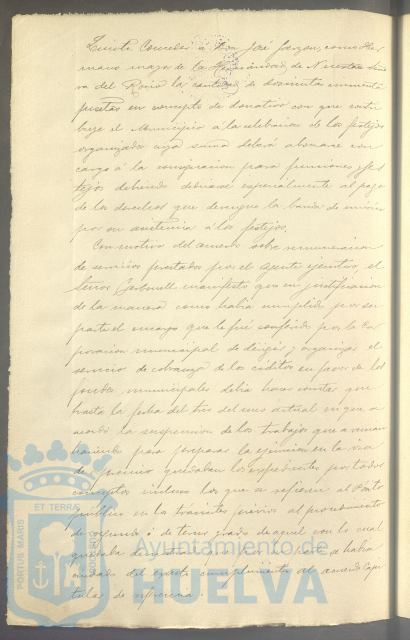 conceder á Don José Garzon, como Her
mano mayor de la Hermandad de Nuestra Seño
ra del Rocio la cantidad de doscientas cincuenta
pesetas en concepto de donativo con que contri
buye el Municipio á la celebracion de los festejos
organizados cuya suma deberá abonarse con
cargo á la consignacion para funciones y fes
tejos debiendo especialmente al pago
de los derechos que devengue la banda de música
por su asistencia á los festejos.
Con motivo del acuerdo sobre remuneracion
de servicios prestados por el Agente ejecutivo, el
Señor manifestó que en justificacion
de la manera como habia cumplido por su
parte el encargo que le fué conferido por la Cor
poracion municipal de dirigir y organizar el
servicio de cobranza de los créditos en favor de los
fondos municipales debia hacer constar que
hasta la fecha del tres del mes actual en que se
acordó la suspension de los trabajos que se venian
haciendo para preparar la ejecucion en la via
de apremio quedaban los expedientes por todos
conceptos incluso los que se refieren al
público en los trámites previos al procedimiento
de segundo ó de tercer grado de aquel con lo cual
quedaba
del exacto cumplimiento al acuerdo Capi
tular de referencia.
ET TERRÆ
PORTUS MARIS
CUSTODIÆ
Ayuntamiento de
HUELVA